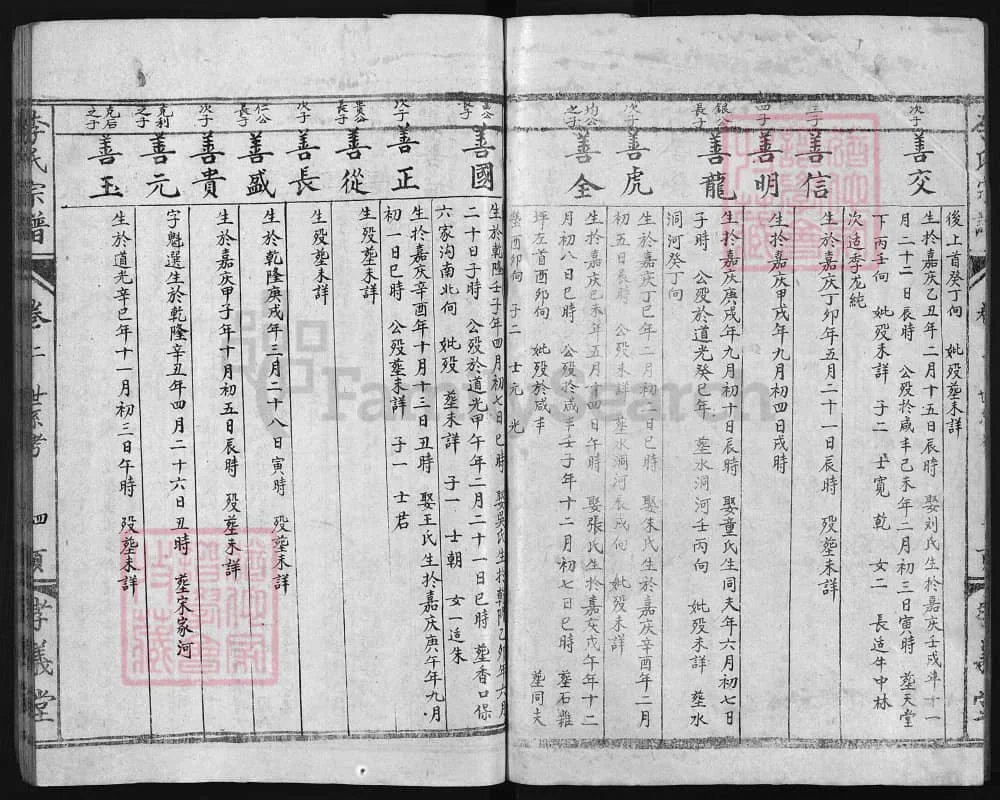 次子
善交
後上首癸丁向 妣殁塟未詳
生於嘉庆乙丑年二月十五日辰時 娶刘氏生於嘉庆壬戌年十一
月二十二日辰時 公殁於咸丰己未年二月初三日寅時 塟天堂
下丙壬向 妣殁未詳 子二 士寬 乾 女二 長造牛中林
次造李龙純
三子
善信
生於嘉庆丁卯年五月二十一日辰時 殁塟未詳
四子
善明
生於嘉庆甲戌年九月初四日戌時
銀公
長子
善龍
生於嘉庆庚戌年九月初十日辰時 娶童氏生同夫年六月初七日
子時 公殁於道光癸巳年 塟水洞河壬丙向 妣殁未詳 塟水
洞河癸丁向
次子
善虎
生於嘉庆丁巳年二月初二日巳時 娶朱氏生於嘉庆辛酉年二月
初五日辰時 公殁未詳塟水洞河辰戌向 妣殁未詳
均公
之子
善全
生於嘉庆己未年五月十四日午時 娶張氏生於嘉庆戊午年十二
月初八日巳時 公殁於咸丰壬子年十二月初七日巳時 塟石雞
坪左首酉卯向 妣殁於咸丰 塟同夫
塋酉卯向 子二 士元 光
富公
長子
善國
生於乾隆壬子年四月初七日巳時 娶吳氏生於乾隆乙卯年六月
二十日子時 公殁於道光甲午年二月二十一日巳時 塟香口保
六家沟南北向 妣殁 塟未詳 子一 士朝 女一造朱
次子
善正
生於嘉庆辛酉年十月十三日丑時 娶王氏生於嘉庆庚午年九月
初一日巳時 公殁塟未詳 子一 士君
貴公
長子
善從
生殁塟未詳
次子
善長
生殁塟未詳
仁公
長子
善盛
生於乾隆庚戌年三月二十八日寅時 殁塟未詳
次子
善貴
生於嘉庆甲子年十月初五日辰時 殁塟未詳
克利
之子
善元
字魁選生於乾隆辛丑年四月二十六日丑時 塟宋家河
克后
之子
善玉
生於道光辛巳年十一月初三日午時 殁塟未詳
李氏宗譜 卷二 世系考 四 頁 孝義堂
FamilySearch